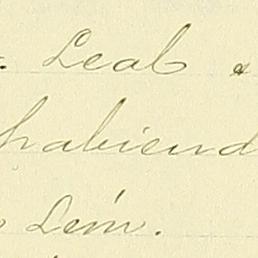 Leal
habiend
Lein.